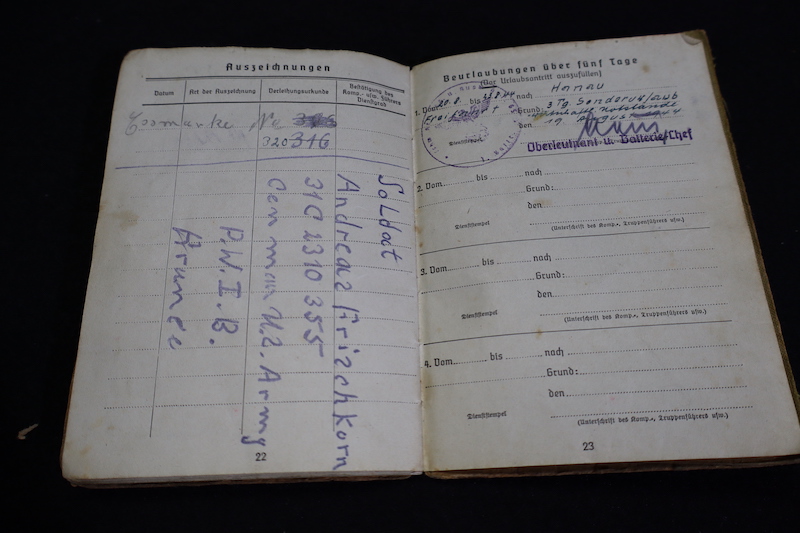 Auszeichnungen
Datum
Art der Auszeichnung
Verleihungsurkunde
Bestätigung des
Komp.- usw. Führers
Dienstgrad
Essmarke No
320 316
Soldat
Andreas Krischkorn
31G 2310 355
German U.S. Army
P.W.I.B.
22
Beurlaubungen über fünf Tage
(Vor Urlaubsantritt auszufüllen)
1. Vom 20.8. bis 23.8.44 nach Hanau
3 Tg Sonderurlaub
den 19. August 1944
Dienststempel
Oberleutnant u. Batteriechef
2. Vom bis nach
Grund:
den
Dienststempel
(Unterschrift des Komp.-, Truppenführers usw.)
3. Vom bis nach
Grund:
den
Dienststempel
(Unterschrift des Komp.-, Truppenführers usw.)
4. Vom bis nach
Grund:
den
Dienststempel
(Unterschrift des Komp.-, Truppenführers usw.)
23